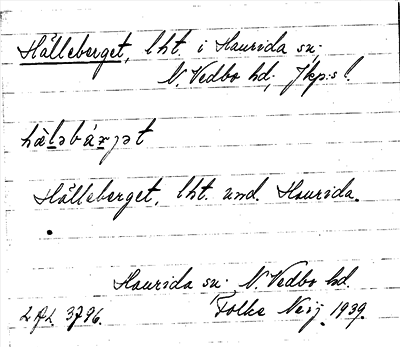 Hälleberget, lht. i Haurida sn.
N. Vedbo hd, Jkp:s l.
hàləbárjət
Hälleberget, lht. und. Haurida.
Haurida sn. N. Vedbo hd.
3796. Folke Neij 1939.